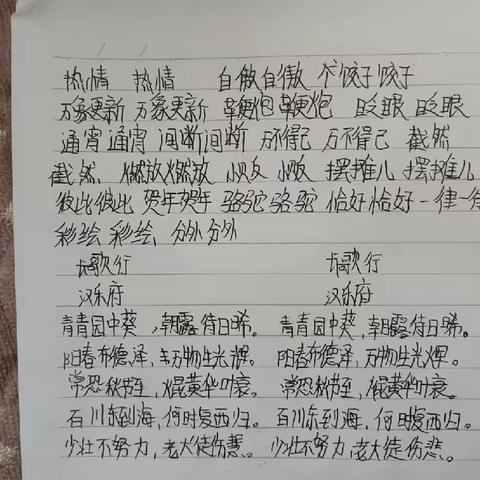 热情 热情 自傲自傲 饺子饺子
万象更新 万象更新 鞭炮鞭炮 眨眼 眨眼
通宵通宵 间断间断 万不得已 万不得已 截然
截然 燃放燃放 小贩 小贩 摆摊儿 摆摊儿
彼此彼此 贺年贺年 骆驼骆驼 恰好恰好 一律一律
彩绘 彩绘 分外分外
长歌行 长歌行
汉乐府 汉乐府
青青园中葵,朝露待日晞。 青青园中葵,朝露待日晞。
阳春布德泽,万物生光辉。 阳春布德泽,万物生光辉。
常恐秋节至,焜黄华叶衰。 常恐秋节至,焜黄华叶衰。
百川东到海,何时复西归。 百川东到海,何时复西归。
少壮不努力,老大徒伤悲。 少壮不努力,老大徒伤悲。